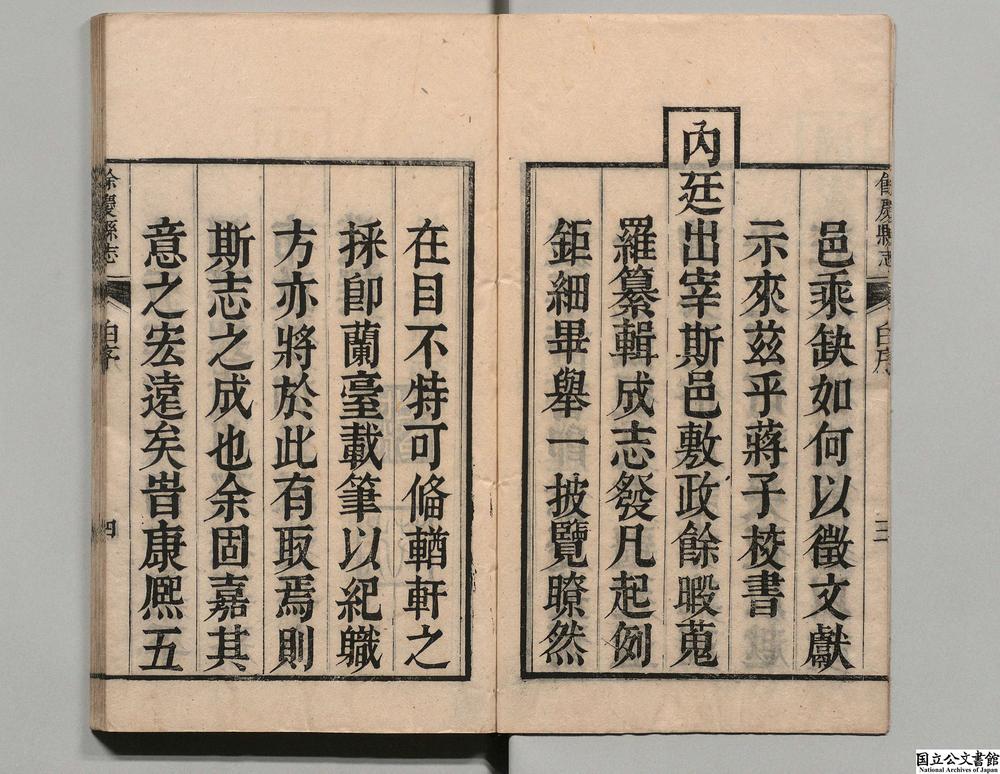 邑乘缺如何以徵文獻
示來茲乎蔣子校書
內廷出宰斯邑敷政餘暇蒐
羅纂輯成志發凡起例
鉅細畢舉一披覽瞭然
餘慶縣志
白序
三
在目不特可脩輶軒之
採卽蘭臺載筆以紀職
方亦將於此有取焉則
斯志之成也余固嘉其
意之宏遠矣昔康熈五
餘慶縣志
白序
四
国立公文書館
National Archives of Japan